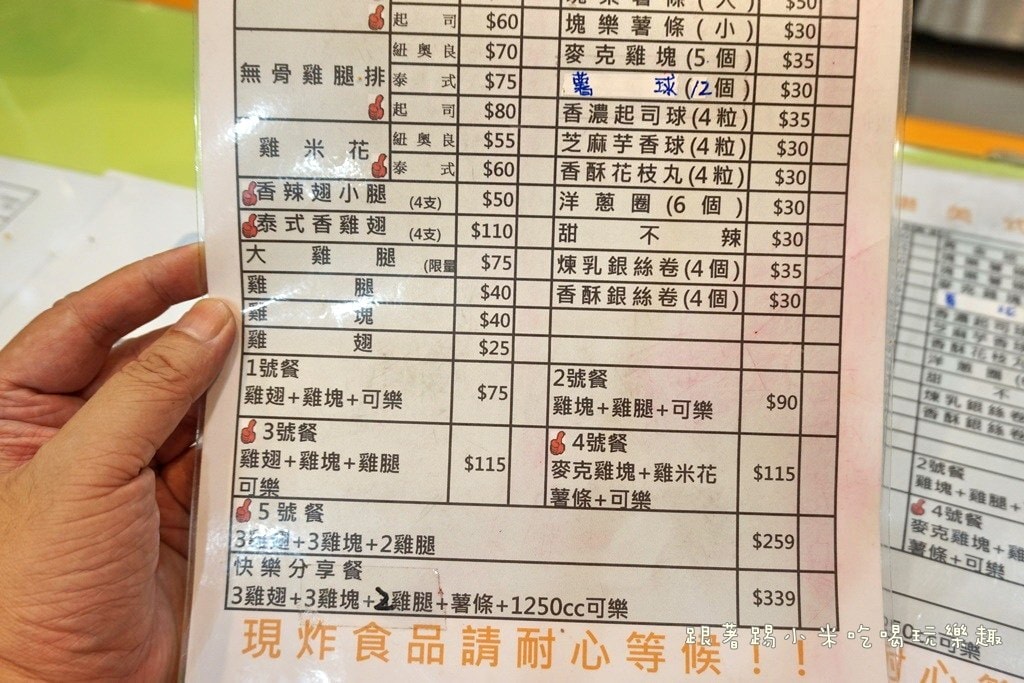 起司 $60
無骨雞腿排 紐奧良 $70
泰式 $75
起司 $80
雞米花 紐奧良 $55
泰式 $60
香辣翅小腿 (4支) $50
泰式香雞翅 (4支) $110
大雞腿 (限量 $75
雞腿 $40
雞塊 $40
雞翅 $25
$50
塊樂薯條(小) $30
麥克雞塊(5個) $35
薯球(12個) $30
香濃起司球(4粒) $35
芝麻芋香球(4粒) $30
香酥花枝丸(4粒) $30
洋蔥圈(6個) $30
甜不辣 $30
煉乳銀絲卷(4個) $35
香酥銀絲卷(4個) $30
1號餐
雞翅+雞塊+可樂 $75
2號餐
雞塊+雞腿+可樂 $90
3號餐
雞翅+雞塊+雞腿
可樂 $115
4號餐
麥克雞塊+雞米花
薯條+可樂 $115
5號餐
3雞翅+3雞塊+2雞腿 $259
快樂分享餐
3雞翅+3雞塊+2雞腿+薯條+1250cc可樂 $339
現炸食品請耐心等候!!
跟著踢小米吃喝玩樂趣
香濃起司球
芝麻芋香球
香酥花枝丸
洋蔥圈
甜不
煉乳銀絲卷
香酥銀絲卷
2號餐
雞塊+雞腿+
4號餐
麥克雞塊+雞
薯條+可樂